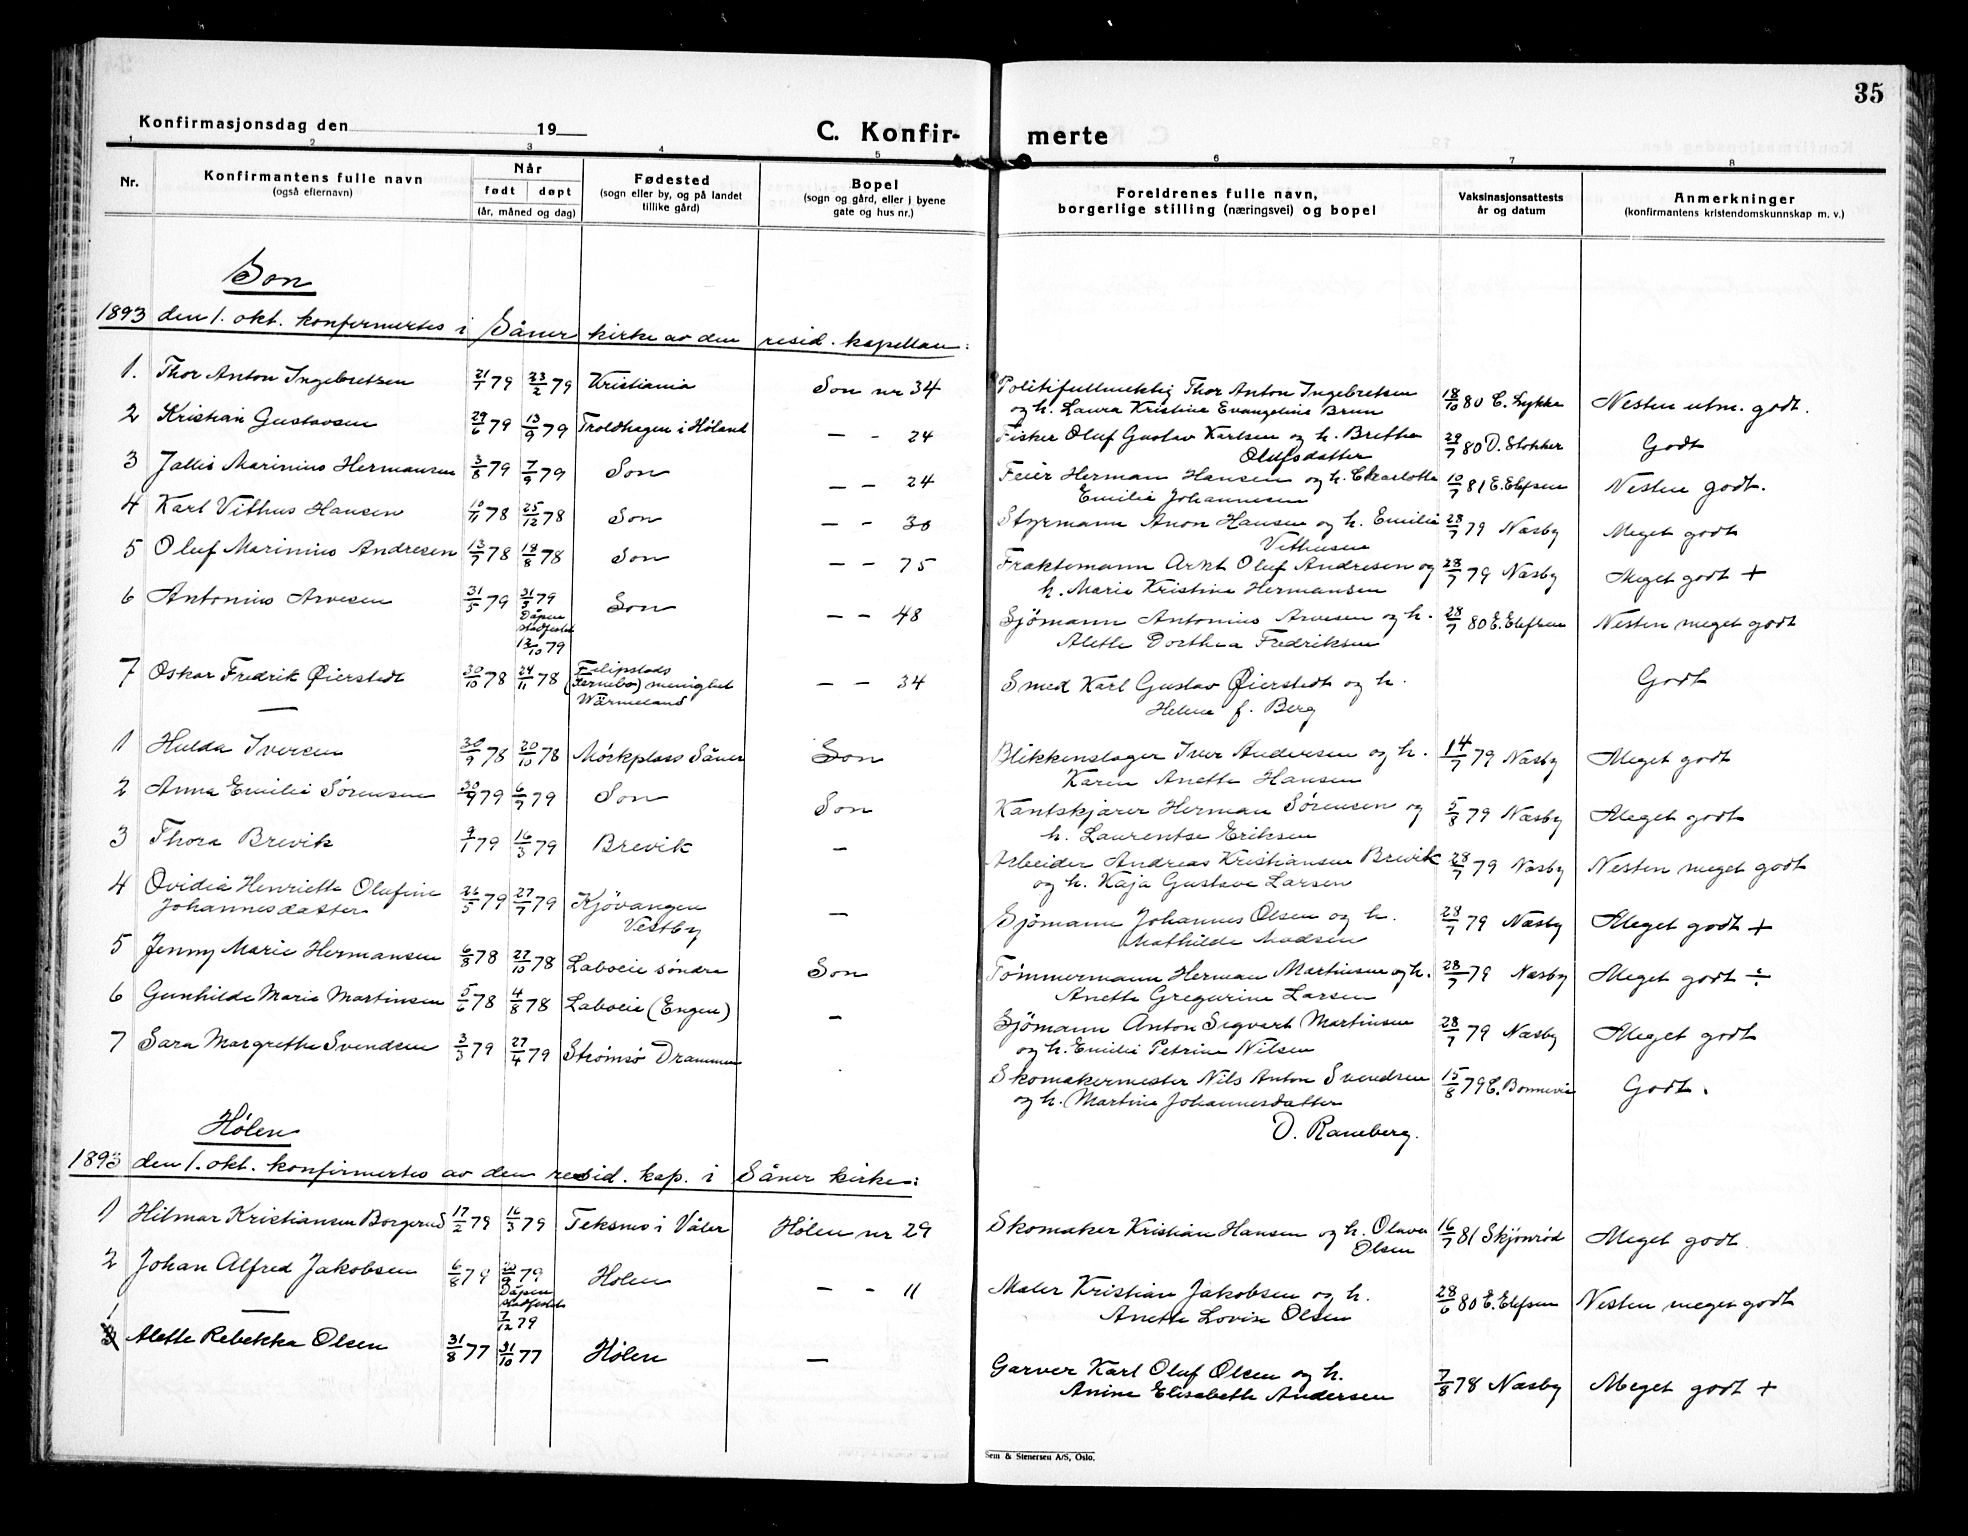 35
Konfirmasjonsdag den 19
C. Konfir- merte
1 2 3 4 5 6 7 8
Nr.
Konfirmantens fulle navn
(også efternavn)
Når
født døpt
(år, måned og dag)
Fødested
(sogn eller by, og på landet
tillike gård)
Bopel
(sogn og gård, eller i byene
gate og hus nr.)
Foreldrenes fulle navn,
borgerlige stilling (næringsvei) og bopel
Vaksinasjonsattests
år og datum
Anmerkninger
(konfirmantens kristendomskunnskap m. v.)
Son
1893 den 1. okt. konfirmertes i Såner kirke av den resid. kapellan:
1. Thor Anton Ingebretsen 21/1 79 23/2 79 Kristiania Son nr 34 Politifullmektig Thor Anton Ingebretsen 18/10 80 C. Lykke Nesten utm. godt.
og h. Laura Kristine Evangeline Brun
2 Kristian Gustavsen 29/6 79 13/9 79 Troldhagen i Høland — - 24 Fisker Oluf Gustav Karlsen og h. Brethe 29/7 80 D. Stokker Godt
Olufsdatter
3 Jallis Marinius Hermansen 3/8 79 7/9 79 Son — — 24 Feier Herman Hansen og h. Charlotte 10/7 81 E. Elefsen Nesten godt.
Emilie Johannesen
4 Karl Vithus Hansen 10/11 78 25/12 78 Son — - 30 Styrmann Anon Hansen og h. Emilie 28/7 79 Næsby Meget godt
Vithusen
5 Oluf Marinius Andresen 13/7 78 18/8 78 Son — — 75 Fraktemann Arnt Oluf Andresen og 28/7 79 Næsby Meget godt +
h. Marie Kristine Hermansen
6 Antonius Arvesen 31/5 79 31/5 79 Son — — 48 Sjömann Antonius Arvesen og h. 28/7 80 E. Elefsen Nesten meget godt
Dåpen
stadfestet
12/10 79
Alette Dorthea Fredriksen
7 Oskar Fredrik Øierstedt 30/10 78 24/11 78 Filipstads — — 34 Smed Karl Gustav Øierstedt og h. Godt
(Fernebo) menighet
Wärmeland
Helene f. Berg
1 Hulda Iversen 30/9 78 20/10 78 Mörkplass Såner Son Blikkenslager Iver Andersen og h. 14/7 79 Næsby Meget godt
Karen Anette Hansen
2 Anna Emilie Sørensen 30/9 79 6/7 79 Son Son Kantskjærer Herman Sørensen og 5/8 79 Næsby Meget godt
h. Laurentse Eriksen
3 Thora Brevik 9/1 79 16/3 79 Brevik — Arbeider Andreas Kristiansen Brevik 28/7 79 Næsby Nesten meget godt
og h. Kaja Gustava Larsen
4 Ovidia Henriette Olufine 26/5 79 27/7 79 Kjövangen — Sjömann Johannes Olsen og h. 28/7 79 Næsby Meget godt +
Johannesdatter Vestby Mathilde Madsen
5 Jenny Marie Hermansen 6/8 78 27/10 78 Laboeie söndre Son Tömmermann Herman Martinsen og h. 28/7 79 Næsby Meget godt ÷
Anette Gregurine Larsen
6 Gunhilde Marie Martinsen 5/6 78 4/8 78 Laboeie (Engen) — Sjömann Anton Segvart Martinsen 28/7 79 Næsby Meget godt
og h. Emilie Petrine Nilsen
7 Sara Margrethe Svendsen 3/3 79 27/4 79 Strömsö Drammen Skomakermester Nils Anton Svendsen 15/8 79 C. Bonnevie Godt.
og h. Martine Johannesdatter
D. Ramberg.
Hølen
1893 den 1. okt. konfirmertes av den resid. kap. i Såner kirke:
1 Hilmar Kristiansen Borgerud 17/2 79 16/3 79 Teksnes i Våler Hølen nr 29 Skomaker Kristian Hansen og h. Olava 16/7 81 Skjönröd Meget godt
Olsen
2 Johan Alfred Jakobsen 6/8 79 20/9 79 Holen — - 11 Maler Kristian Jakobsen og h. 28/6 80 E. Elefsen Nesten meget godt
Dåpen
stadfestet
7/12 79
Anette Lovise Olsen
1 Alette Rebekka Olsen 31/8 77 31/10 77 Hølen — Garver Karl Oluf Olsen og h. 7/8 78 Næsby Meget godt +
Anine Elisabeth Andersen
Sem & Stenersen A/S, Oslo.